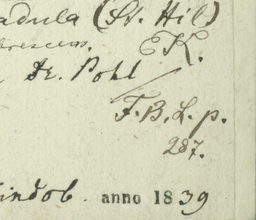 adula (St. Hil)
rescens. EK.
Dr. Pohl
F. B. L. p.
287.
indob. anno 1839